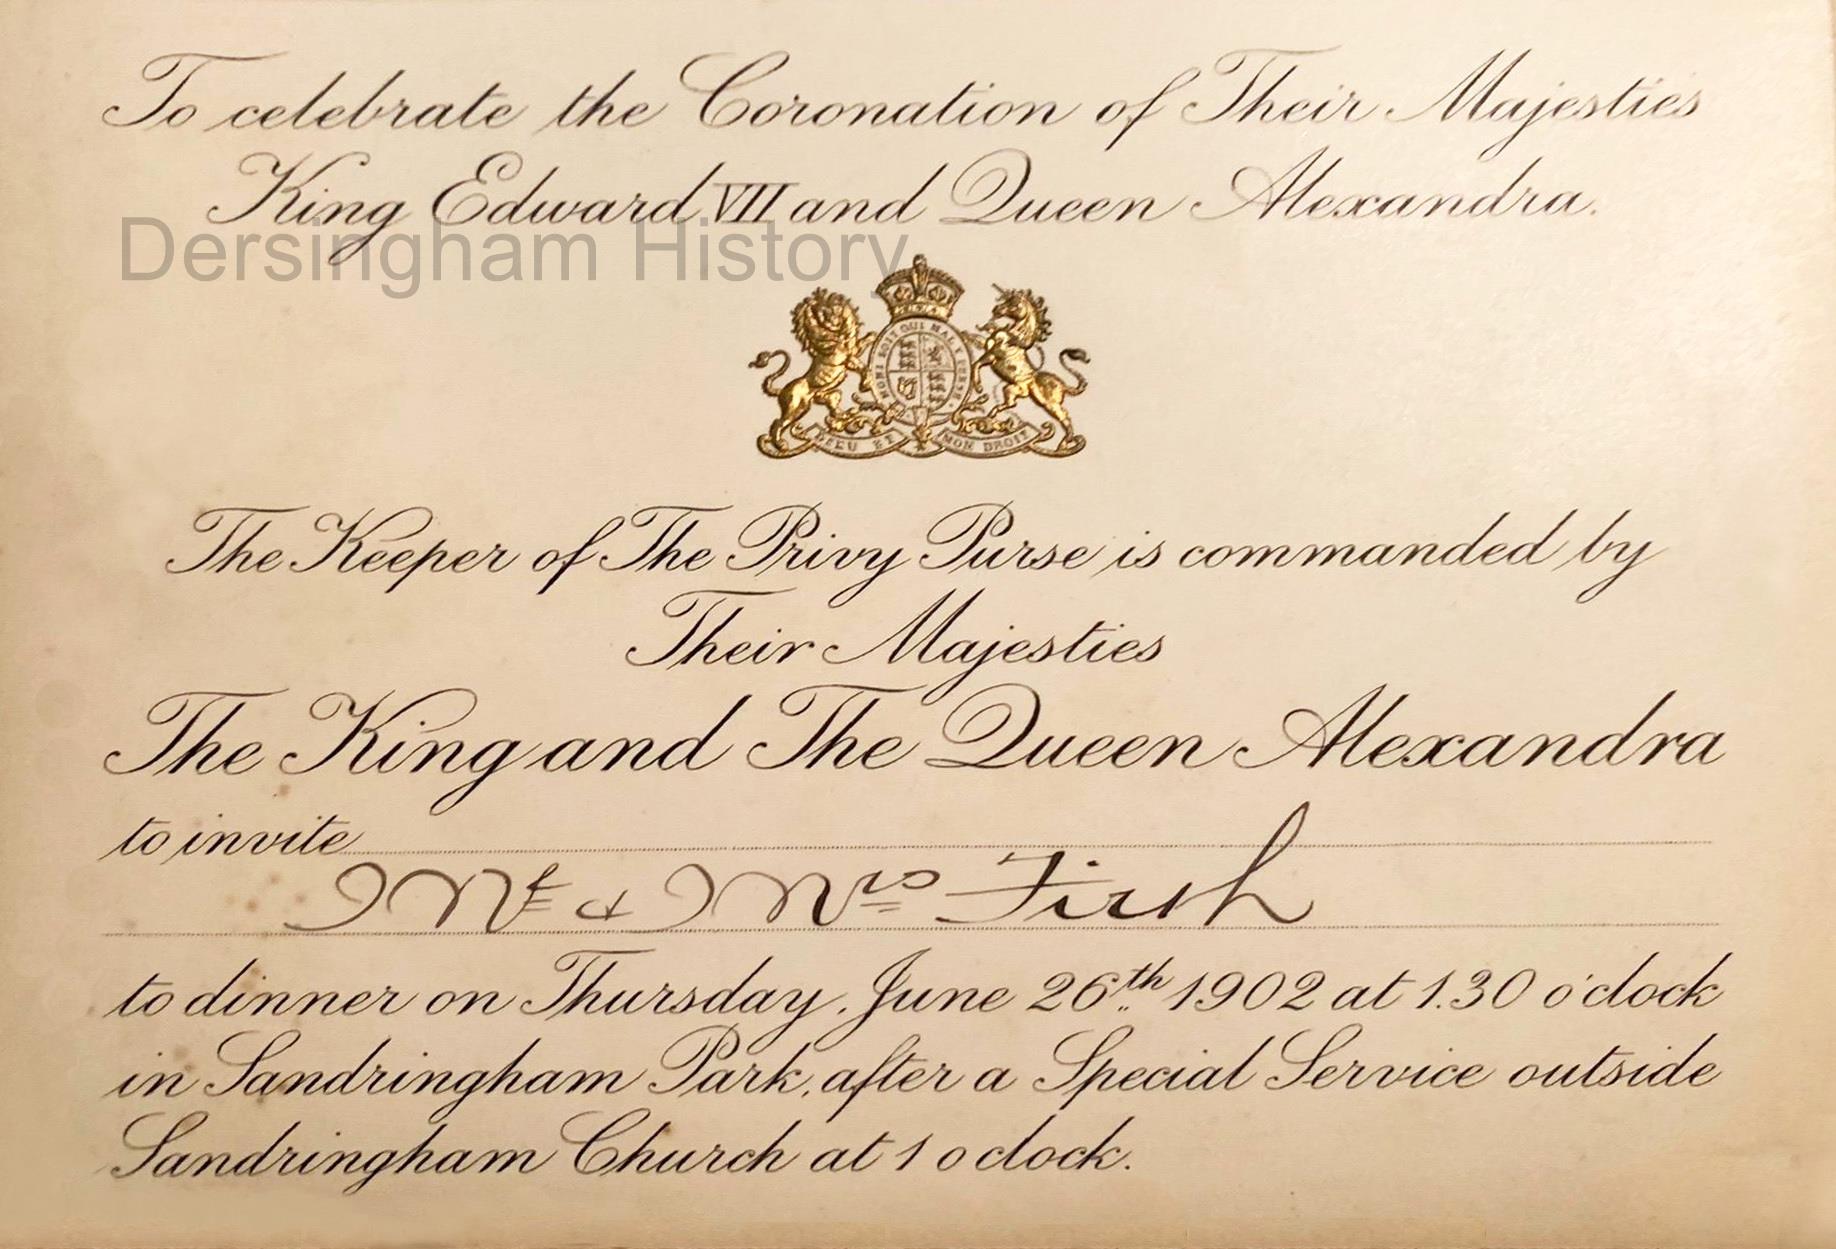 To celebrate the Coronation of Their Majesties
King Edward VII and Queen Alexandra.
Dersingham History
HONI SOIT QUI MAL Y PENSE
DIEU ET MON DROIT
The Keeper of The Privy Purse is commanded by
Their Majesties
The King and The Queen Alexandra
to invite
Mr & Mrs
to dinner on Thursday, June 26th 1902 at 1.30 o'clock
in Sandringham Park, after a Special Service outside
Sandringham Church at 1 o clock.